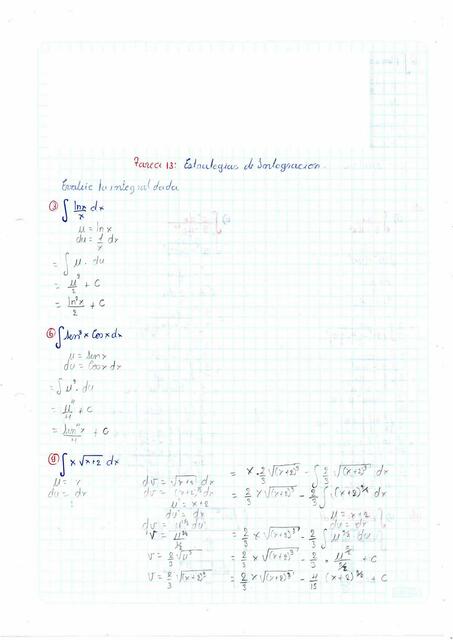 Tarea 13: Estrategias de Integración.
Evalúe la integral dada
③ ∫ lnx/x dx
μ = lnx
du = 1/x dx
= ∫ μ · du
= μ²/2 + C
= ln²x/2 + C
⑥ ∫ sen³x Cosx dx
μ = senx
du = Cosx dx
= ∫ μ³ · du
= μ⁴/4 + C
= sen⁴x/4 + C
⑨ ∫ x √(x+2) dx
μ = x
du = dx
dv = √(x+2) dx
dv = (x+2)^½ dx
μ = x+2
du = dx
dv = μ^½ du
v = μ^(3/2) / (3/2)
v = 2/3 √μ³
v = 2/3 √(x+2)³
= x · 2/3 √(x+2)³ - ∫ 2/3 √(x+2)³ dx
= 2/3 x √(x+2)³ - 2/3 ∫ (x+2)^(3/2) dx
μ = x+2
du = dx
= 2/3 x √(x+2)³ - 2/3 ∫ μ^(3/2) du
= 2/3 x √(x+2)³ - 2/3 · μ^(5/2) / (5/2) + C
= 2/3 x √(x+2)³ - 4/15 (x+2)^(5/2) + C